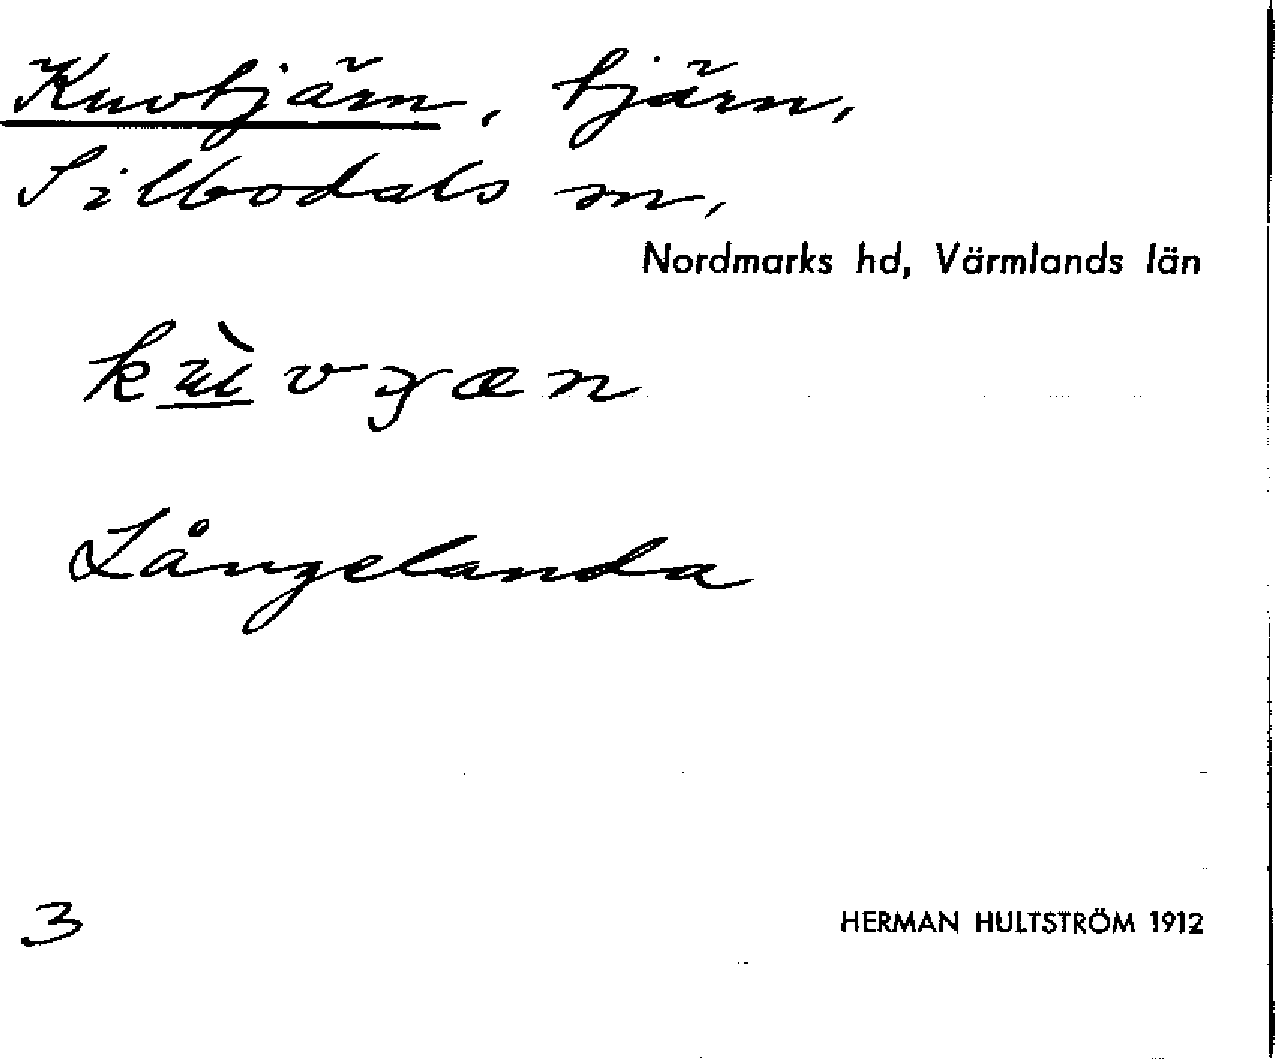 Kuvtjärn, tjärn,
Silbodals sn,
Nordmarks hd, Värmlands län
Långelanda
3
HERMAN HULTSTRÖM 1912